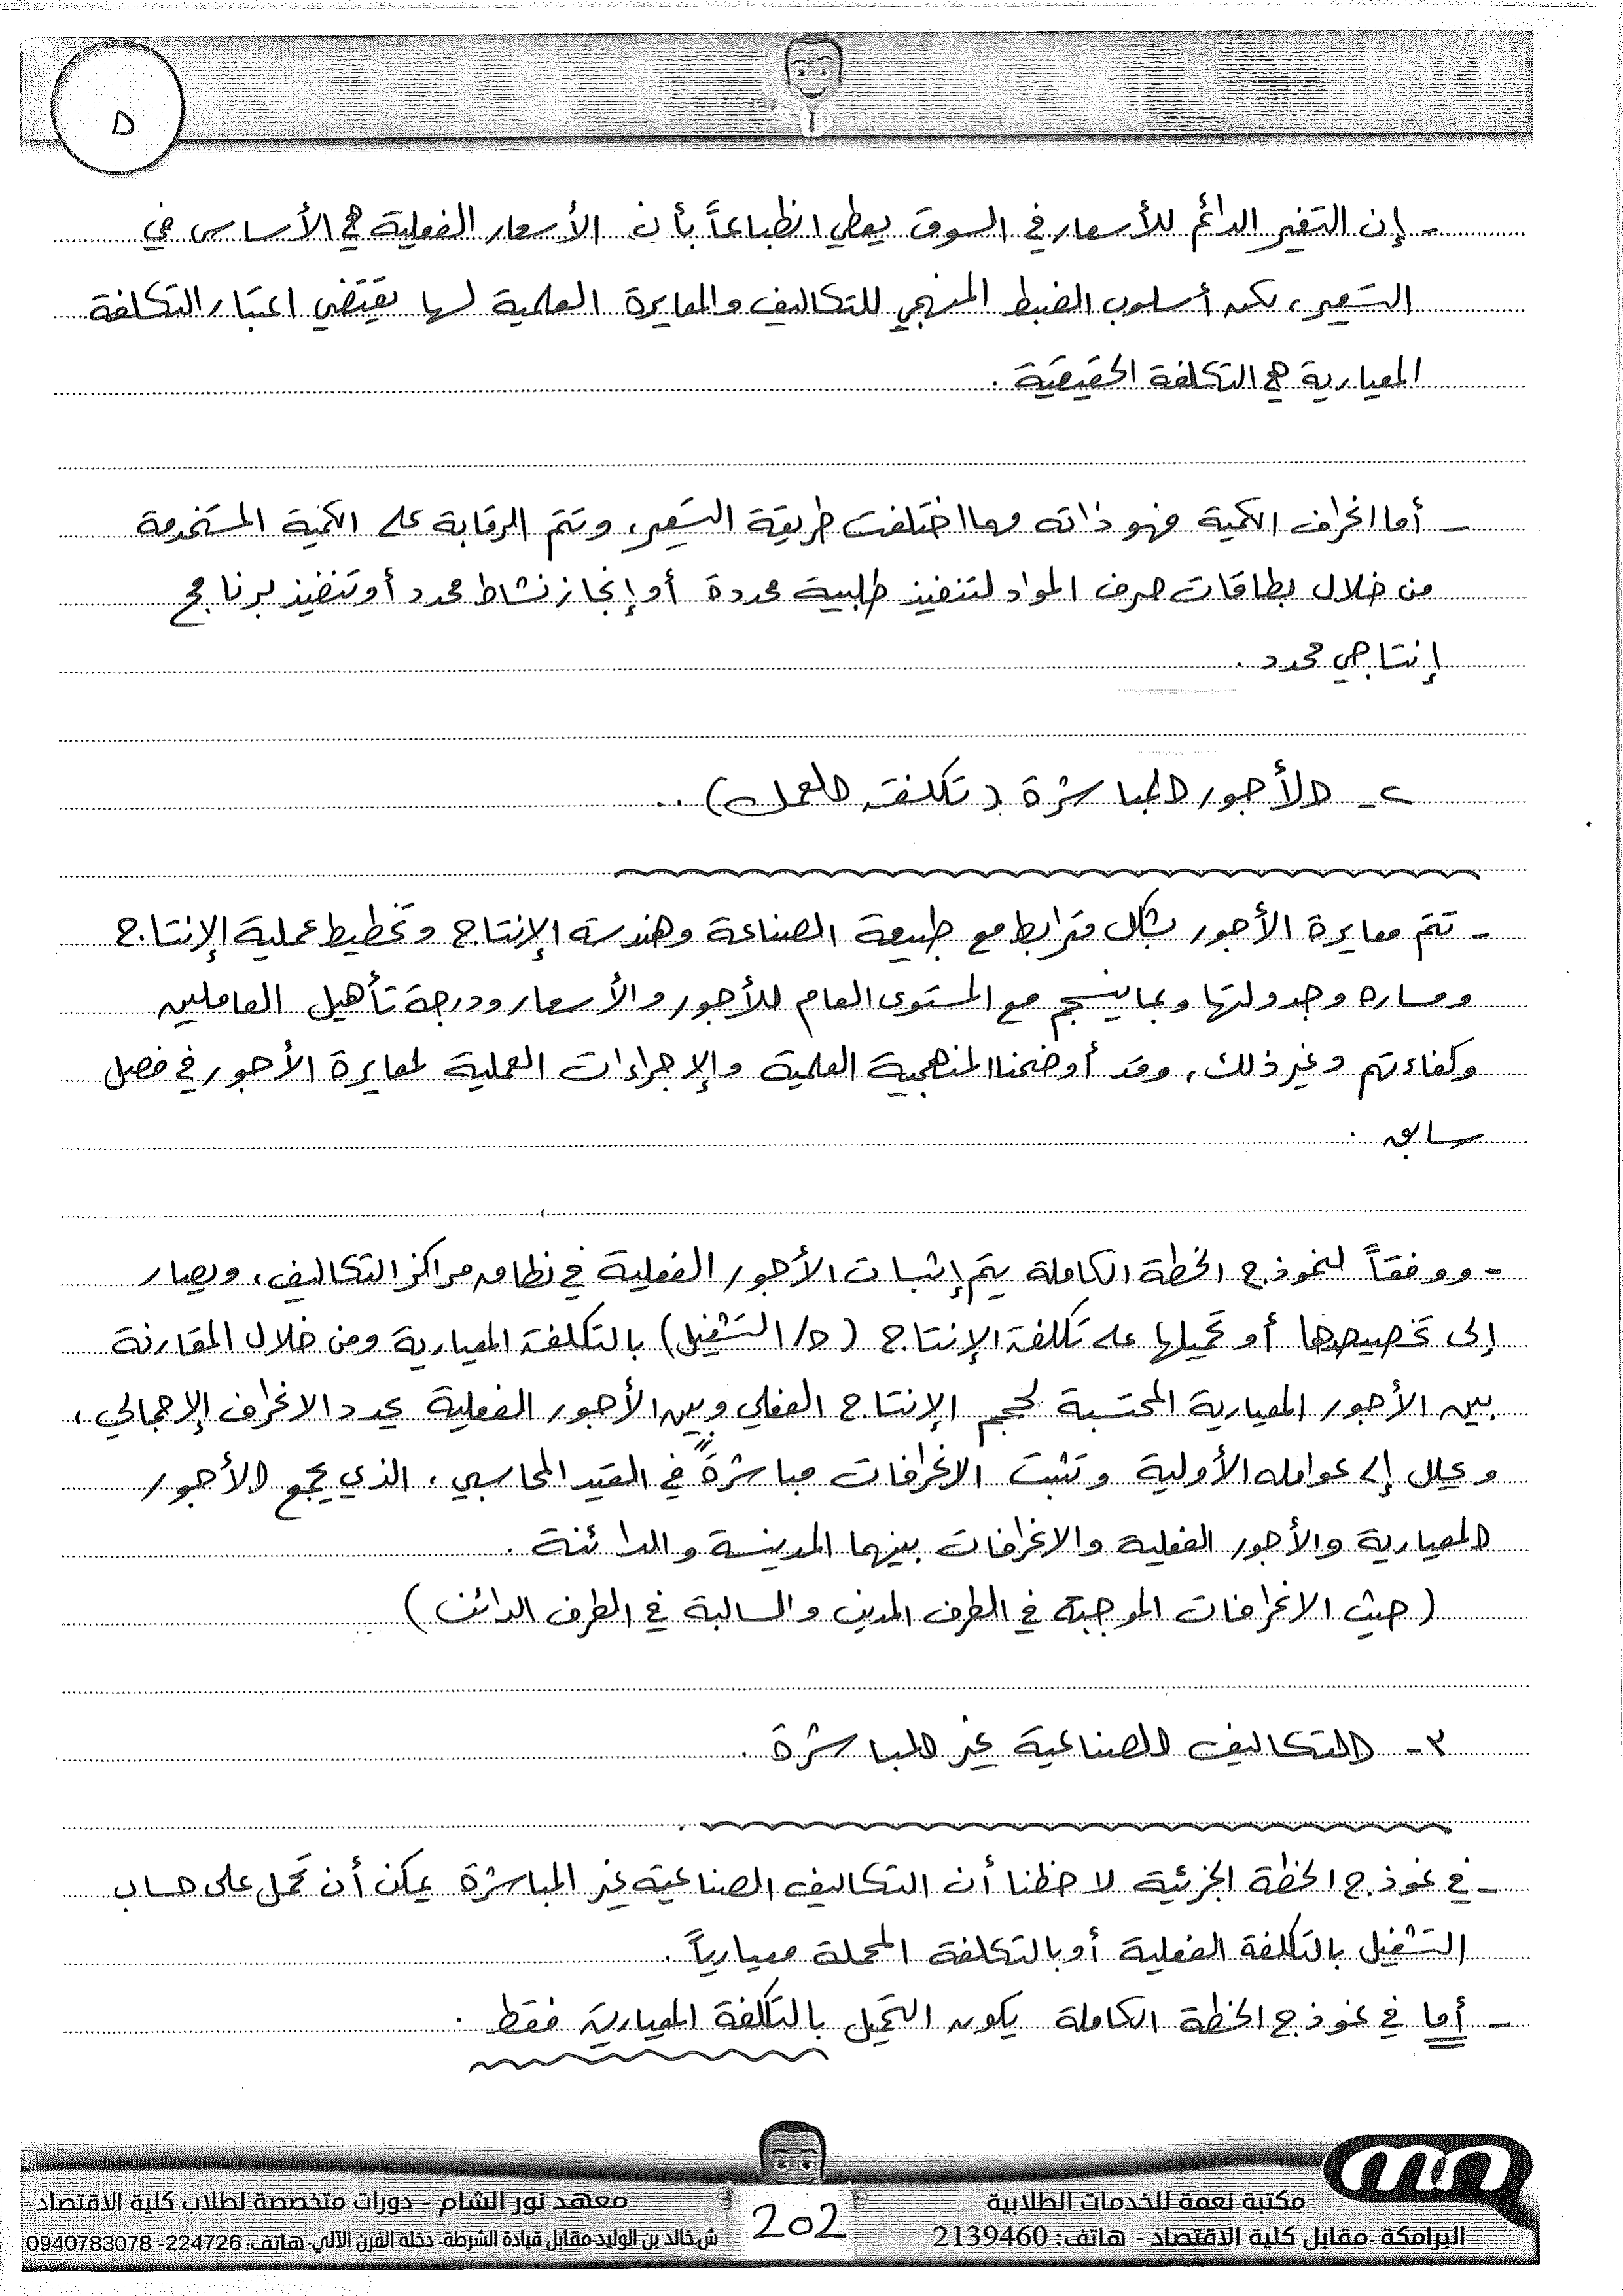 ٥
- إن التغير الدائم للأسعار في السوق يعطي انطباعاً بأن الأسعار الفعلية هي الأساس في
التسعير، لكن أسلوب الضبط المنهجي للتكاليف والمعايرة العلمية لها يقتضي اعتبار التكلفة
المعيارية هي التكلفة الحقيقية .
- أما انحراف الكمية فهو ذاته مهما اختلفت طريقة التسعير، وتتم الرقابة على الكمية المستخدمة
من خلال بطاقات صرف المواد لتنفيذ طلبية محددة أو إنجاز نشاط محدد أو تنفيذ برنامج
إنتاجي محدد .
٢- الأجور المباشرة (تكلفة العمل) ..
- تتم معايرة الأجور بشكل مترابط مع طبيعة الصناعة وهندسة الإنتاج وتخطيط عملية الإنتاج
ومساره وجدولتها وبما ينسجم مع المستوى العام للأجور والأسعار ودرجة تأهيل العاملين
وكفاءتهم وغير ذلك، وقد أوضحنا المنهجية العلمية والإجراءات العملية لمعايرة الأجور في فصل
سابق .
- ووفقاً لنموذج الخطة الكاملة يتم إثبات الأجور الفعلية في نطاق مراكز التكاليف، ويصار
إلى تخصيصها أو تحميلها على تكلفة الإنتاج (ح/ التشغيل) بالتكلفة المعيارية ومن خلال المقارنة
بين الأجور المعيارية المحتسبة لحجم الإنتاج الفعلي وبين الأجور الفعلية يحدد الانحراف الإجمالي،
ويحلل إلى عوامله الأولية وتثبت الانحرافات مباشرةً في القيد المحاسبي، الذي يجمع الأجور
المعيارية والأجور الفعلية والانحرافات بينهما المدينة والدائنة .
(حيث الانحرافات الموجبة في الطرف المدين والسالبة في الطرف الدائن)
٣- التكاليف الصناعية غير المباشرة .
- في نموذج الخطة الجزئية لاحظنا أن التكاليف الصناعية غير المباشرة يمكن أن تحمل على حساب
التشغيل بالتكلفة الفعلية أو بالتكلفة المحملة معيارياً .
- أما في نموذج الخطة الكاملة يكون التحميل بالتكلفة المعيارية فقط .
مكتبة نعمة للخدمات الطلابية
البرامكة -مقابل كلية الاقتصاد - هاتف: 2139460
202
معهد نور الشام - دورات متخصصة لطلاب كلية الاقتصاد
ش.خالد بن الوليد-مقابل قيادة الشرطة- دخلة الفرن الآلي- هاتف: 224726- 0940783078